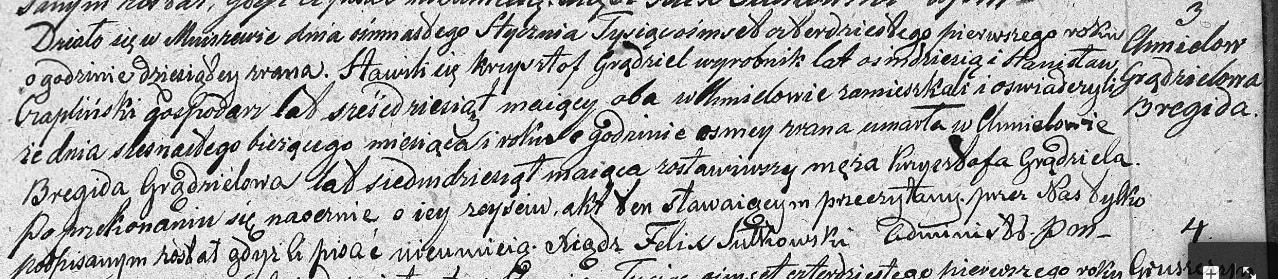 3
Chmielow
Grądzielowa
Bregida.
Działo się w Mniszewie dnia ośmnastego Stycznia Tysiąc ośmset czterdziestego pierwszego roku
o godzinie dziesiątey zrana. Stawili się Krzysztof Grądziel wyrobnik lat ośmdziesiąt i Stanisław
Czapliński gospodarz lat sześćdziesiąt maiący, oba w Chmielowie zamieszkali i oświadczyli
że dnia szesnastego bieżącego miesiąca i roku o godzinie osmey zrana umarła w Chmielowie
Bregida Grądzielowa lat siedmdziesiąt maiąca zostawiwszy męża Krzysztofa Grądziela.
Po przekonaniu się naocznie o iey zeyściu, akt ten stawaiącym przeczytany, przez Nas tylko
podpisanym został gdyż ci pisać nieumieią. Xiądz Felix Sutkowski Administ. Pm-
4.
pierwszego roku